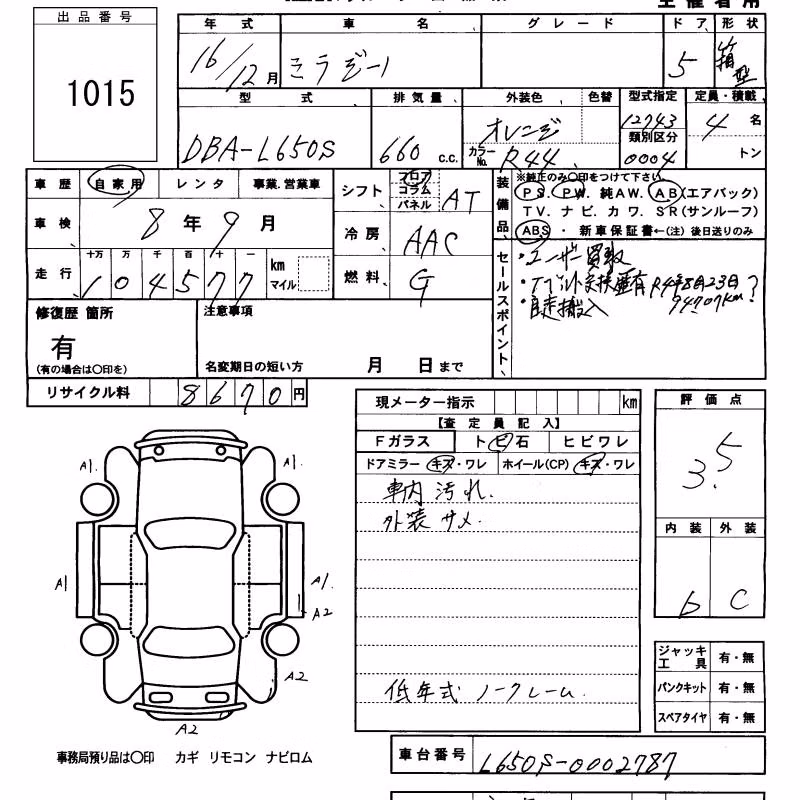 主催者用
出品番号 年式 車名 グレード ドア 形状
1015
16/12月 ミラジーノ 5 箱型
型式 排気量 外装色 色替 型式指定 定員・積載
DBA-L650S 660 c.c. オレンジ 12743 4名
カラーNo. R44 類別区分 0004 トン
車歴 自家用 レンタ 事業.営業車
シフト フロア コラム パネル AT
装備品 ※純正のみ〇印をつけて下さい。
PS. PW. 純AW. AB(エアバック)
TV. ナビ. カワ. SR(サンルーフ)
ABS ・ 新車保証書←(注) 後日送りのみ
車検 8年9月
冷房 AAC
走行 十万 万 千 百 十 一 km マイル
104577
燃料 G
セールスポイント
・ユーザー買取
・Tベルト交換歴有 R4年8月23日
94707km?
・自走搬入
修復歴 箇所
有
(有の場合は〇印を)
注意事項
名変期日の短い方 月 日まで
リサイクル料 8670円
現メーター指示 km
【査定員記入】
Fガラス トビ石 ヒビワレ
ドアミラー キズ・ワレ ホイール(CP) キズ・ワレ
車内 汚れ.
外装 サメ.
低年式 ノークレーム.
評価点
3.5
内装 外装
b C
A1. A1.
A1 A1.
A2
A2
A2
ジャッキ工具 有・無
パンクキット 有・無
スペアタイヤ 有・無
事務局預り品は〇印 カギ リモコン ナビロム
車台番号 L650S-0002787